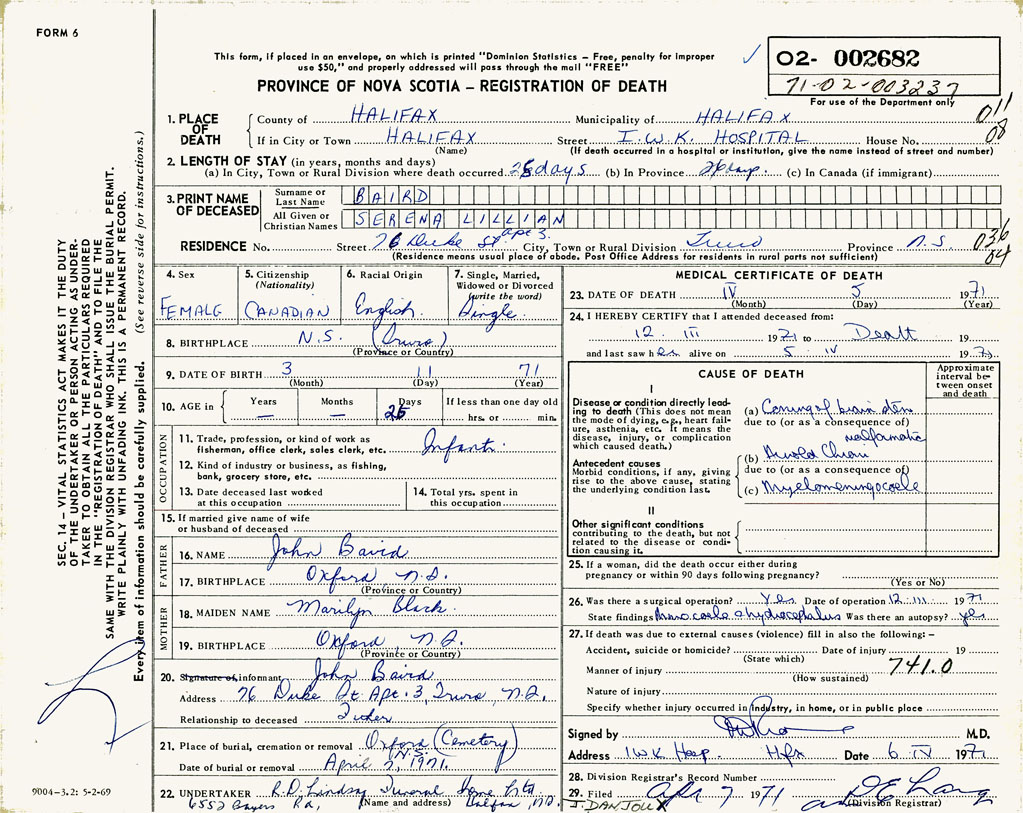 FORM 6
This form, if placed in an envelope, on which is printed "Dominion Statistics – Free, penalty for improper
use $50," and properly addressed will pass through the mail "FREE"
PROVINCE OF NOVA SCOTIA – REGISTRATION OF DEATH
02- 002682
71-02-003237
For use of the Department only
1. PLACE OF DEATH
County of HALIFAX Municipality of HALIFAX 011
If in City or Town HALIFAX Street I.W.K. HOSPITAL House No. 08
(Name) (If death occurred in a hospital or institution, give the name instead of street and number)
2. LENGTH OF STAY (in years, months and days)
(a) In City, Town or Rural Division where death occurred days (b) In Province 26 days. (c) In Canada (if immigrant)
3. PRINT NAME OF DECEASED
Surname or Last Name BAIRD
All Given or Christian Names SERENA LILLIAN
RESIDENCE No. Street 76 Duke St apt 3. City, Town or Rural Division Truro Province N.S. 036
(Residence means usual place of abode. Post Office Address for residents in rural parts not sufficient) 04
4. Sex FEMALE
5. Citizenship (Nationality) CANADIAN
6. Racial Origin English
7. Single, Married, Widowed or Divorced (write the word) Single
8. BIRTHPLACE N.S. (Truro)
(Province or Country)
9. DATE OF BIRTH 3 11 71
(Month) (Day) (Year)
10. AGE in Years – Months – Days 25 If less than one day old hrs. or min.
OCCUPATION
11. Trade, profession, or kind of work as
fisherman, office clerk, sales clerk, etc. Infant
12. Kind of industry or business, as fishing,
bank, grocery store, etc.
13. Date deceased last worked
at this occupation
14. Total yrs. spent in
this occupation
15. If married give name of wife
or husband of deceased
FATHER
16. NAME John Baird
17. BIRTHPLACE Oxford, N.S.
(Province or Country)
MOTHER
18. MAIDEN NAME Marilyn Black
19. BIRTHPLACE Oxford N.S.
(Province or Country)
20. Signature of informant John Baird
Address 76 Duke St. Apt. 3, Truro, N.S.
Relationship to deceased Father
21. Place of burial, cremation or removal Oxford (Cemetery)
N.S.
Date of burial or removal April 7, 1971.
22. UNDERTAKER R.D. Lindsay Funeral Home Ltd
6552 Bayers Rd, (Name and address) Halifax, N.S.
MEDICAL CERTIFICATE OF DEATH
23. DATE OF DEATH IV 5 1971
(Month) (Day) (Year)
24. I HEREBY CERTIFY that I attended deceased from:
12. III 1971 to Death 19
and last saw her alive on 5 IV 1971
CAUSE OF DEATH
Approximate interval between onset and death
I
Disease or condition directly leading to death (This does not mean the mode of dying, e.g., heart failure, asthenia, etc. It means the disease, injury, or complication which caused death.)
(a) Coning of brain stem
due to (or as a consequence of)
malformation
(b) Arnold Chiari
Antecedent causes
Morbid conditions, if any, giving rise to the above cause, stating the underlying condition last.
due to (or as a consequence of)
(c) Myelomeningocoele
II
Other significant conditions
contributing to the death, but not
related to the disease or condition causing it.
25. If a woman, did the death occur either during
pregnancy or within 90 days following pregnancy?
(Yes or No)
26. Was there a surgical operation? Yes Date of operation 12. III 1971
State findings & hydrocephalus Was there an autopsy? yes
27. If death was due to external causes (violence) fill in also the following: –
Accident, suicide or homicide? Date of injury 19
(State which)
Manner of injury 741.0
(How sustained)
Nature of injury
Specify whether injury occurred in industry, in home, or in public place
Signed by M.D.
Address IWK Hosp. Hfx Date 6 IV 1971
28. Division Registrar's Record Number
29. Filed Apr 7 1971
J. DANJOUX (Division Registrar)
SEC. 14 – VITAL STATISTICS ACT MAKES IT THE DUTY
OF THE UNDERTAKER OR PERSON ACTING AS UNDER-
TAKER TO OBTAIN ALL THE PARTICULARS REQUIRED
IN THE "REGISTRATION OF DEATH" AND TO FILE THE
SAME WITH THE DIVISION REGISTRAR WHO SHALL ISSUE THE BURIAL PERMIT.
WRITE PLAINLY WITH UNFADING INK. THIS IS A PERMANENT RECORD.
Every item of information should be carefully supplied. (See reverse side for instructions.)
9004-3.2: 5-2-69